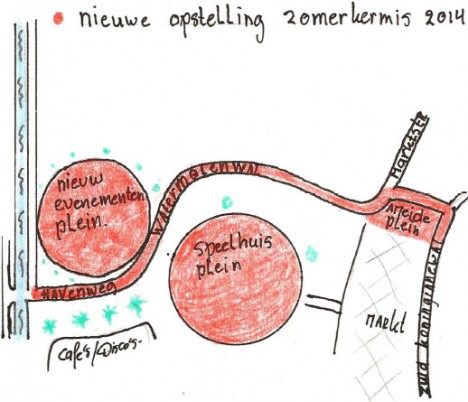 nieuwe opstelling zomerkermis 2014
Marktstr
nieuw
evenementen
plein.
WATERMOLENWAL
Ameide
plein
Speelhuis
plein
Havenweg
MARKt
zuid koninginnewal
Café's/Disco's-